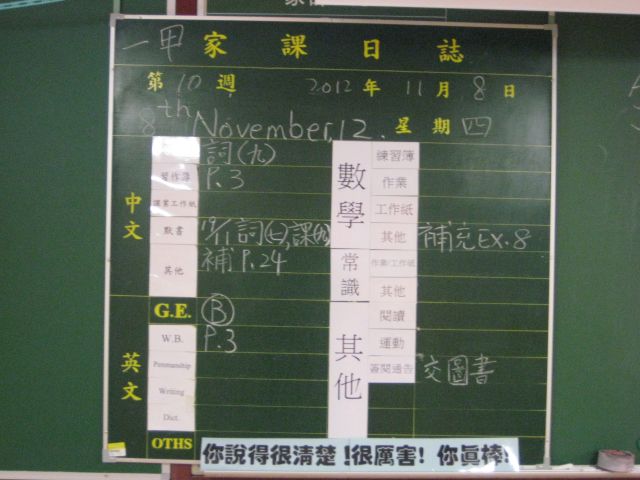 一甲 家課日誌
第 10 週 2012 年 11 月 8 日
8th November, 12. 星期 四
中文
詞(九)
習作簿 P.3
課業工作紙
默書
其他 補 P.24
G.E. Ⓑ
英文
W.B. P.3
Penmanship
Writing
Dict.
OTHS
數學
練習簿
作業
工作紙
其他 補充 EX.8
常識
作業/工作紙
其他
其他
閱讀
運動
簽閱通告 交圖書
你說得很清楚!很厲害! 你真棒!